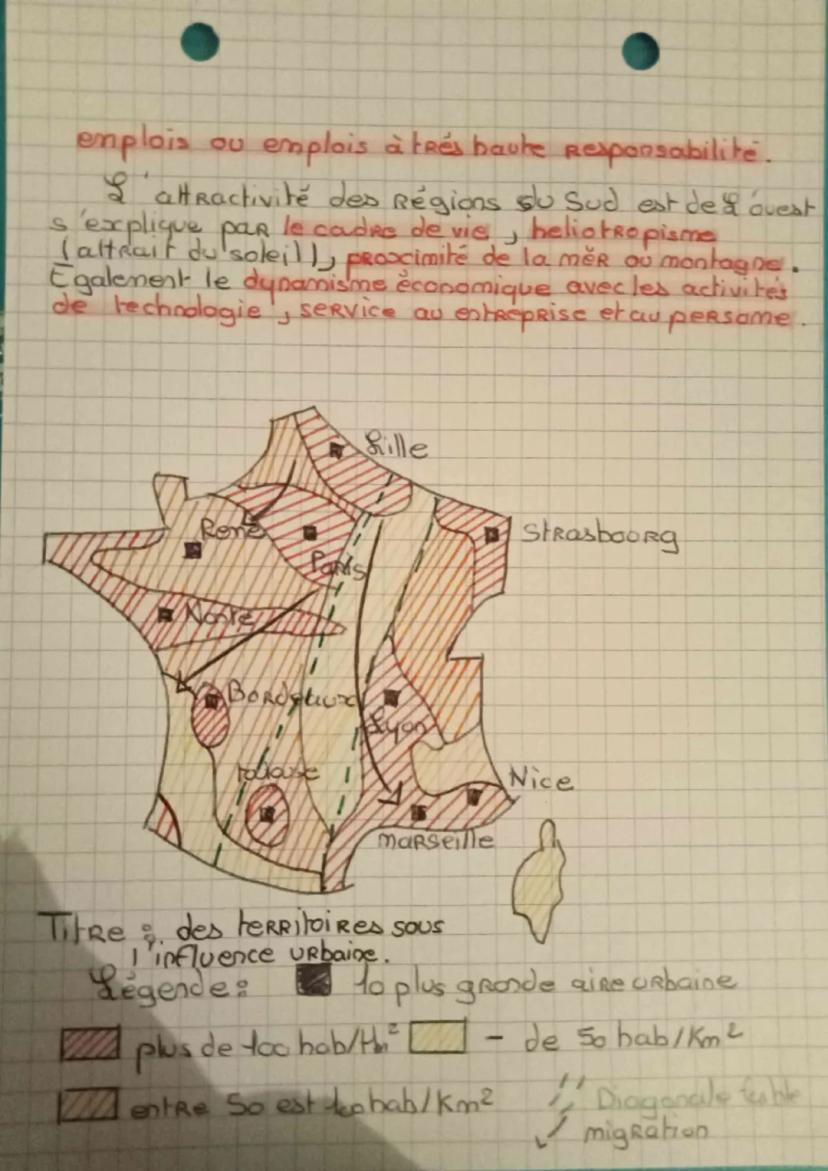 emplois ou emplois à trés haute Responsabilité.
L'attRactivité des Régions du Sud est de l'ouest
s'explique paR le cadre de vie, heliotRopisme
(attrait du soleil), pRoximité de la mëR ou montagne.
Également le dynamisme économique avec les activités
de technologie, service au entreprise et au persome.
Lille
Strasbourg
Rene
Paris
Nante
Bordeaux
Lyon
toulouse
Nice
maRseille
Titre : des territoires sous
l'influence urbaine.
Légende : 10 plus grande aire urbaine
plus de 100 hab/Km² - de 50 hab/Km²
entre 50 est 100 hab/Km² Diagonale faible
migration